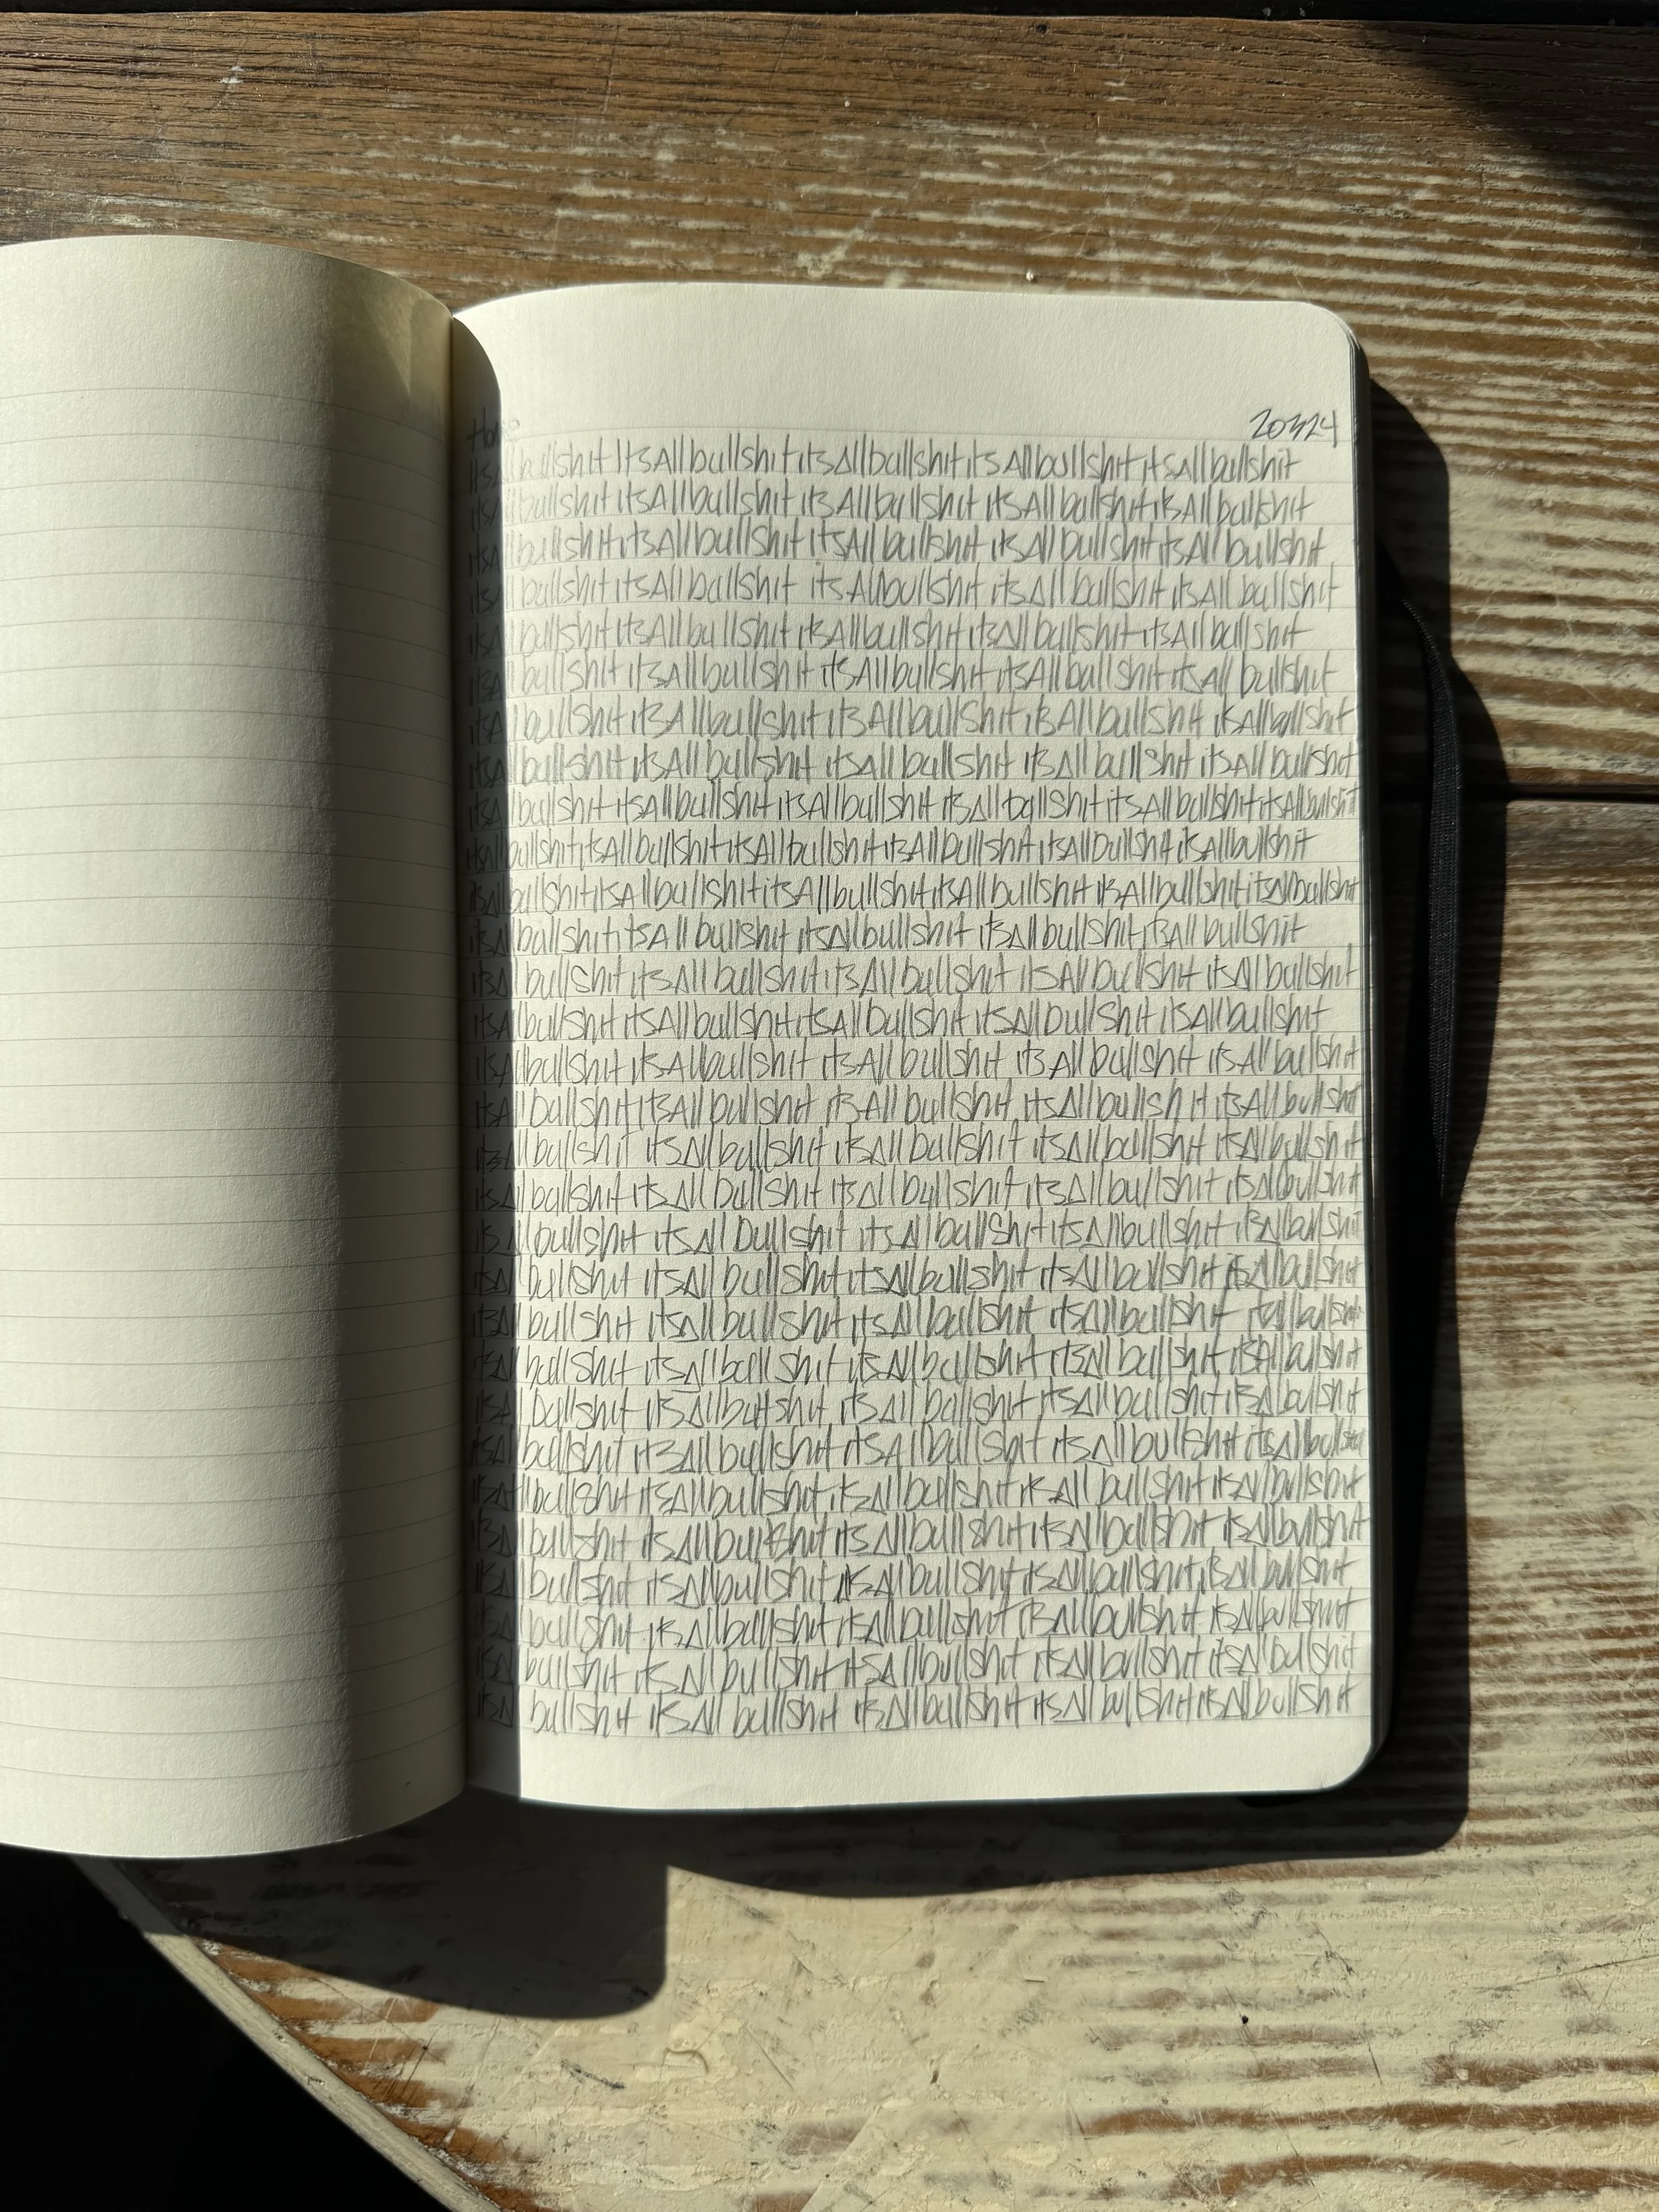 20324
itsAll bullshit ItsAll bullshit itsAll bullshit itsAll bullshit itsAll bullshit
itsAll bullshit itsAll bullshit itsAll bullshit itsAll bullshit itsAll bullshit
itsAll bullshit itsAll bullshit itsAll bullshit itsAll bullshit itsAll bullshit
itsAll bullshit itsAll bullshit itsAll bullshit itsAll bullshit itsAll bullshit
itsAll bullshit itsAll bullshit itsAll bullshit itsAll bullshit itsAll bullshit
itsAll bullshit itsAll bullshit itsAll bullshit itsAll bullshit itsAll bullshit
itsAll bullshit itsAll bullshit itsAll bullshit itsAll bullshit itsAll bullshit
itsAll bullshit itsAll bullshit itsAll bullshit itsAll bullshit itsAll bullshit
itsAll bullshit itsAll bullshit itsAll bullshit itsAll bullshit itsAll bullshit itsAll bullshit
itsAll bullshit itsAll bullshit itsAll bullshit itsAll bullshit itsAll bullshit itsAll bullshit
itsAll bullshit itsAll bullshit itsAll bullshit itsAll bullshit itsAll bullshit itsAll bullshit
itsAll bullshit itsAll bullshit itsAll bullshit itsAll bullshit itsAll bullshit
itsAll bullshit itsAll bullshit itsAll bullshit itsAll bullshit itsAll bullshit
itsAll bullshit itsAll bullshit itsAll bullshit itsAll bullshit itsAll bullshit
itsAll bullshit itsAll bullshit itsAll bullshit itsAll bullshit itsAll bullshit
itsAll bullshit itsAll bullshit itsAll bullshit itsAll bullshit itsAll bullshit
itsAll bullshit itsAll bullshit itsAll bullshit itsAll bullshit itsAll bullshit
itsAll bullshit itsAll bullshit itsAll bullshit itsAll bullshit itsAll bullshit
itsAll bullshit itsAll bullshit itsAll bullshit itsAll bullshit itsAll bullshit
itsAll bullshit itsAll bullshit itsAll bullshit itsAll bullshit itsAll bullshit
itsAll bullshit itsAll bullshit itsAll bullshit itsAll bullshit itsAll bullshit
itsAll bullshit itsAll bullshit itsAll bullshit itsAll bullshit itsAll bullshit
itsAll bullshit itsAll bullshit itsAll bullshit itsAll bullshit itsAll bullshit
itsAll bullshit itsAll bullshit itsAll bullshit itsAll bullshit itsAll bullshit
itsAll bullshit itsAll bullshit itsAll bullshit itsAll bullshit itsAll bullshit
itsAll bullshit itsAll bullshit itsAll bullshit itsAll bullshit itsAll bullshit
itsAll bullshit itsAll bullshit itsAll bullshit itsAll bullshit itsAll bullshit
itsAll bullshit itsAll bullshit itsAll bullshit itsAll bullshit itsAll bullshit
itsAll bullshit itsAll bullshit itsAll bullshit itsAll bullshit itsAll bullshit
itsAll bullshit itsAll bullshit itsAll bullshit itsAll bullshit itsAll bullshit